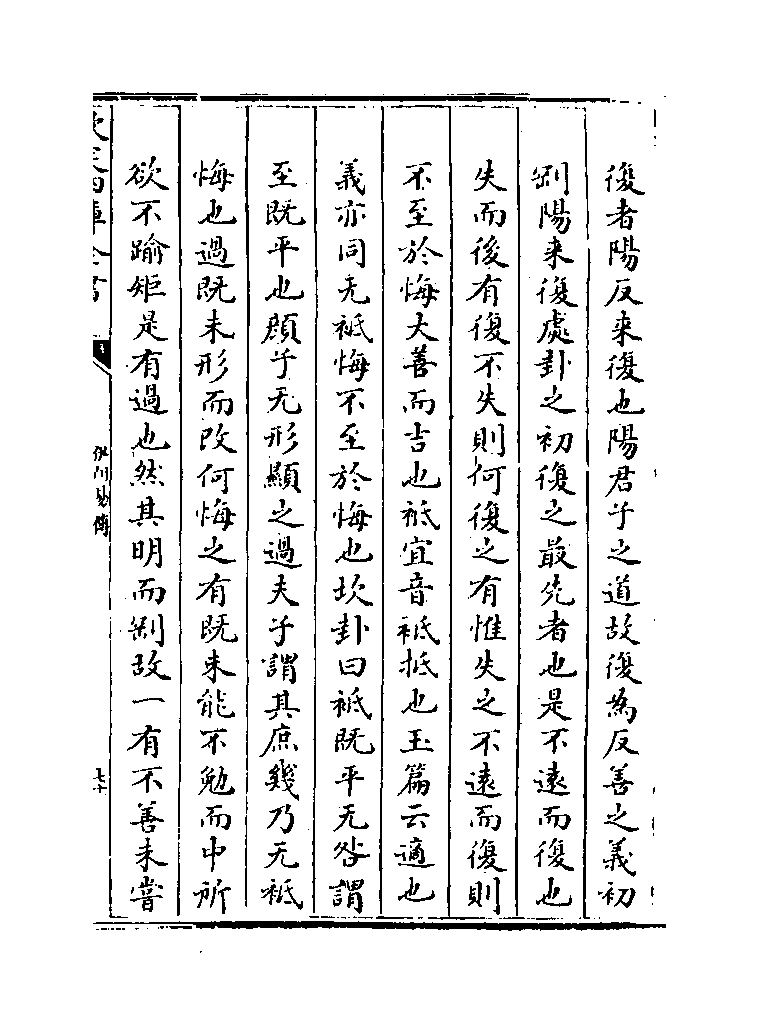 復者陽反来復也陽君子之道故復為反善之義初
剝陽来復處卦之初復之最先者也是不遠而復也
失而後有復不失則何復之有惟失之不遠而復則
不至於悔大善而吉也祗宜音祗抵也玉篇云適也
義亦同无祗悔不至於悔也坎卦曰祗既平无咎謂
至既平也顔子无形顯之過夫子謂其庶幾乃无祗
悔也過既未形而改何悔之有既未能不勉而中所
欲不踰矩是有過也然其明而剛故一有不善未嘗
欽定四庫全書
伊川易傳
七十